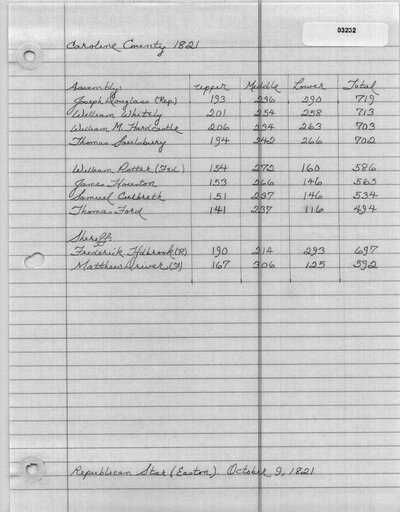 03232
Caroline County 1821
Assembly: upper Middle Lower Total
Joseph Douglass (Rep.) 193 236 290 719
William Whitely 201 254 258 713
William M. Hardcastle 206 234 263 703
Thomas Saulsbury 194 242 266 702
William Potter (Fed.) 154 272 160 586
James Houston 153 266 146 565
Samuel Culbreth 151 237 146 534
Thomas Ford 141 237 116 494
Sheriff:
Frederick Holbrook (R) 190 214 293 697
Matthew Driver (F) 167 306 125 592
Republican Star (Easton). October 9, 1821